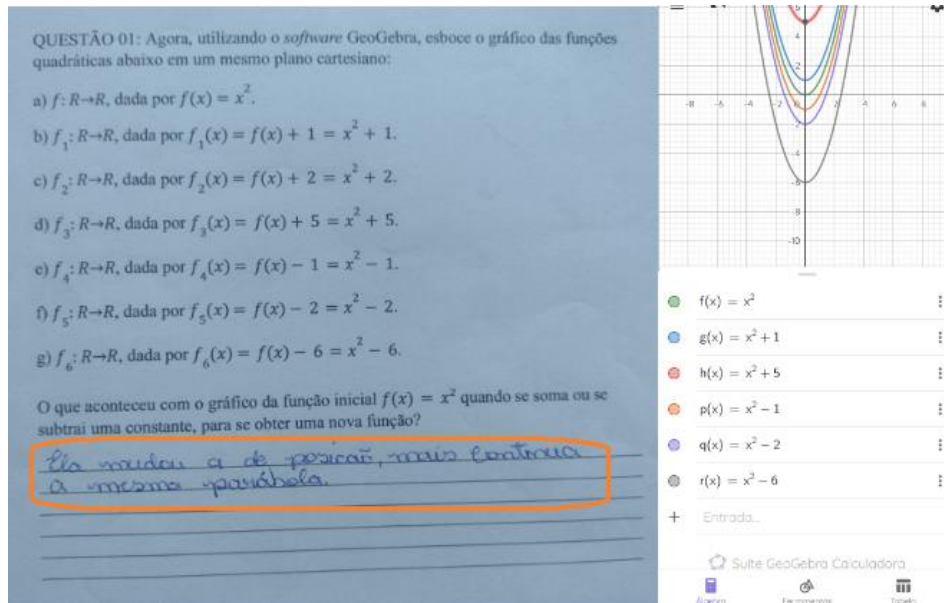 QUESTÃO 01: Agora, utilizando o software GeoGebra, esboce o gráfico das funções
quadráticas abaixo em um mesmo plano cartesiano:
a) f: R→R, dada por f(x) = x².
b) f₁: R→R, dada por f₁(x) = f(x) + 1 = x² + 1.
c) f₂: R→R, dada por f₂(x) = f(x) + 2 = x² + 2.
d) f₃: R→R, dada por f₃(x) = f(x) + 5 = x² + 5.
e) f₄: R→R, dada por f₄(x) = f(x) − 1 = x² − 1.
f) f₅: R→R, dada por f₅(x) = f(x) − 2 = x² − 2.
g) f₆: R→R, dada por f₆(x) = f(x) − 6 = x² − 6.
O que aconteceu com o gráfico da função inicial f(x) = x² quando se soma ou se
subtrai uma constante, para se obter uma nova função?
Ela mudou a de posicaõ, mais continua
a mesma parábola.
f(x) = x²
g(x) = x² + 1
h(x) = x² + 5
p(x) = x² − 1
q(x) = x² − 2
r(x) = x² − 6
+ Entrada...
Suite GeoGebra Calculadora
Álgebra Ferramentas Tabela